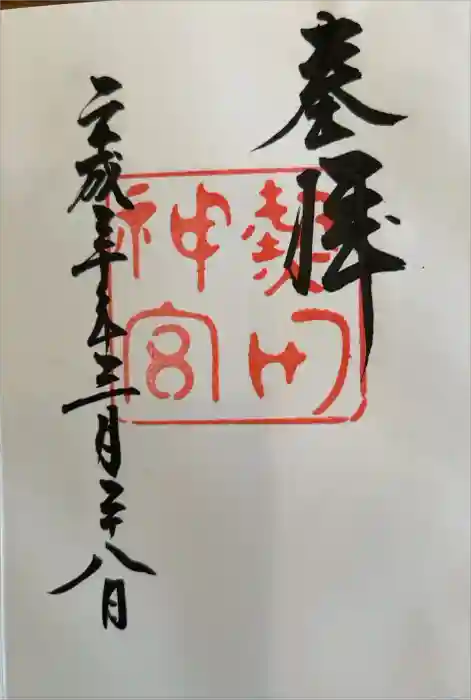 奉拝
熱田
神宮
平成三十年三月二十八日